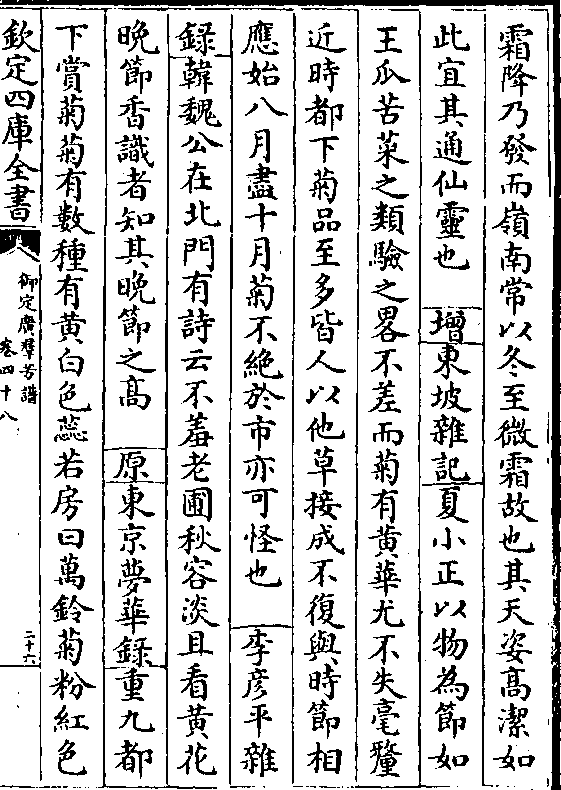 霜降乃發而嶺南常以冬至微霜故也其天姿高潔如
此宜其通仙靈也　增東坡雜記夏小正以物為節如
王瓜苦菜之類驗之畧不差而菊有黄華尤不失毫釐
近時都下菊品至多皆人以他草接成不復與時節相
應始八月盡十月菊不絶於市亦可怪也　李彦平雜
録韓魏公在北門有詩云不羞老圃秋容淡且看黄花
晚節香識者知其晚節之高　原東京夢華録重九都
下賞菊菊有數種有黄白色蕊若房曰萬鈴菊粉紅色
欽定四庫全書
御定廣羣芳譜
卷四十八
二十六